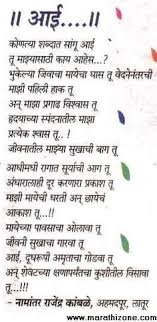 ॥ आई....॥
कोणत्या शब्दात सांगू आई
तू माझ्यासाठी काय आहेस...?
भुकेल्या जिवाचा मायेचा घास तू वेदनेनंतरची
माझी पहिली हाक तू
अन् माझा प्रगाढ विश्वास तू
हृदयाच्या स्पंदनातील माझा
प्रत्येक श्वास तू.. !
जीवनातील माझ्या सुखाचा बाग तू
आधीमधी रागात सूर्याची आग तू
अंधारालाही दूर करणारा प्रकाश तू
माझी मायेची धरती अन् छायेचं
आकाश तू...!
मायेच्या पावसाचा ओलावा तू
जीवनी सुखाचा गारवा तू
आई, दूधरुपी अमृताचा गोडवा तू
अन् शेवटच्या क्षणापर्यंतचा कुशीतील विसावा
तू...!!!
- नामांतर राजेंद्र कांबळे, अहमदपूर, लातूर
www.marathizone.com